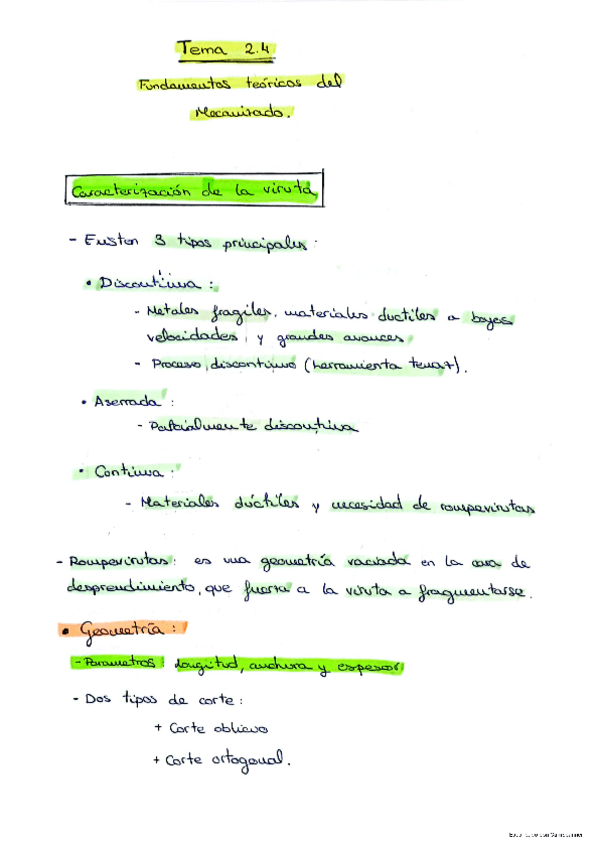 Tema 2.4
Fundamentos teóricos del
Mecanizado.
Caracterización de la viruta
- Existen 3 tipos principales:
• Discontinua:
- Metales fragiles, materiales ductiles a bajas
velocidades, y grandes avances
- Proceso discontinuo (herramienta tenaz).
• Aserrada:
- Parcialmente discontinua
• Continua:
- Materiales dúctiles y necesidad de rompevirutas
- Rompevirutas: es una geometría vaciada en la cara de
desprendimiento, que fuerza a la viruta a fragmentarse.
• Geometría:
- Parametros: longitud, anchura y espesor
- Dos tipos de corte:
+ Corte oblicuo
+ Corte ortogonal.